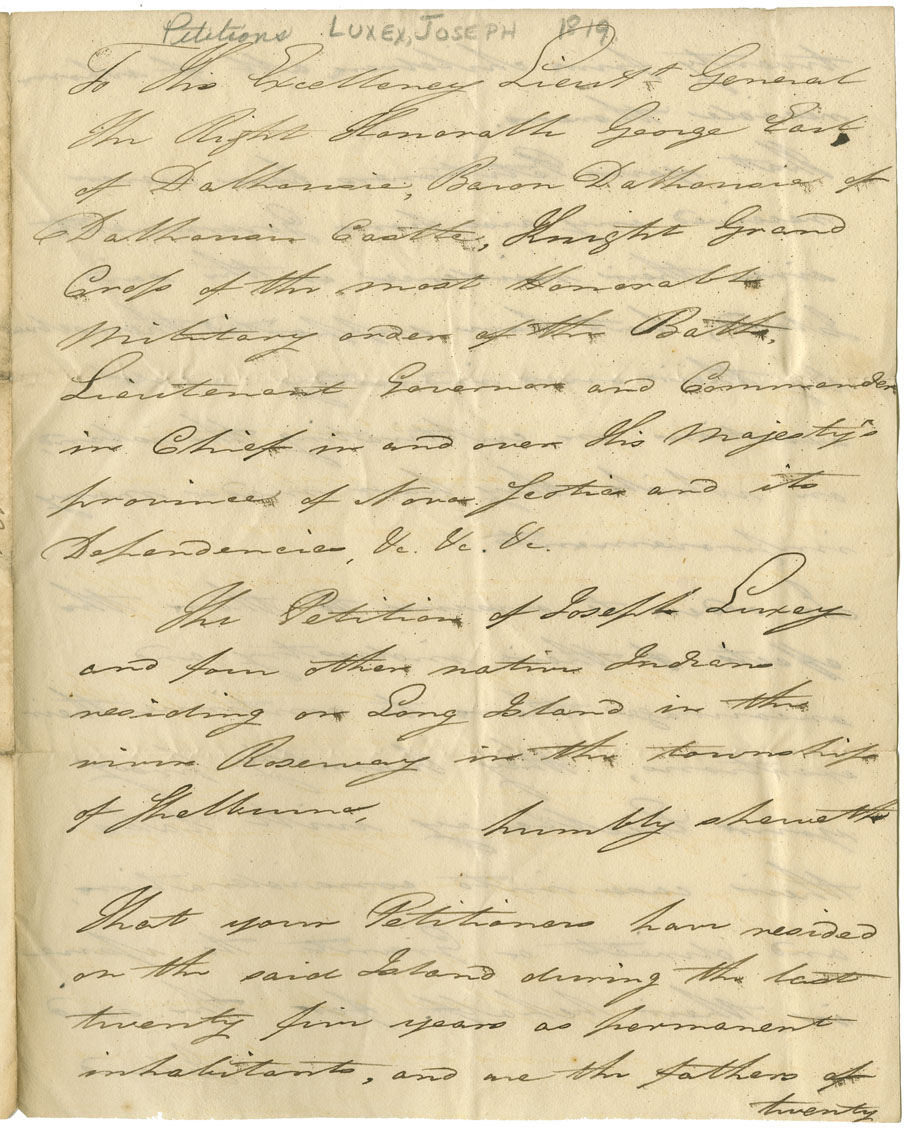 Petitions LUXEY, JOSEPH 1819
To His Excellency Lieut.t General
the Right Honorable George Earl
of Dalhousie, Baron Dalhousie of
Dalhousie Castle, Knight Grand
Cross of the most Honorable
Military order of the Bath,
Lieutenant Governor and Commander
in Chief in and over His Majesty's
province of Nova Scotia and its
Dependencies, &c. &c. &c.
The Petition of Joseph Luxey
and four other native Indians
residing on Long Island in the
river Roseway in the township
of Shelburne,
humbly sheweth
That your Petitioners have resided
on the said Island during the last
twenty five years as permanent
inhabitants, and are the fathers of
twenty